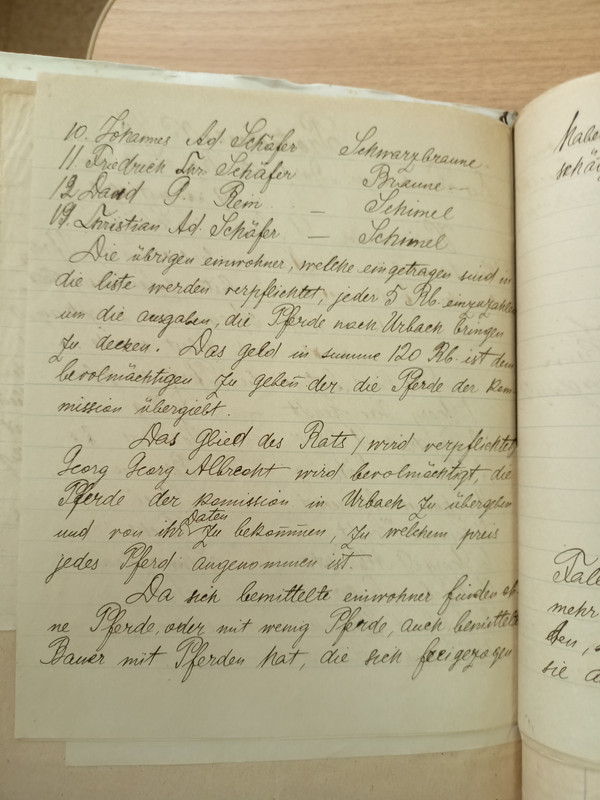 10. Johannes Ad. Schäfer Schwarzbraune
11 Friedrich Chr. Schäfer Braune —
12 David G. Rem — Schimel
19. Christian Ad. Schäfer — Schimel
Die übrigen einwohner, welche eingetragen sind in
die liste werden verpflichtet, jeder 5 Rb. einzuzahlen
um die ausgaben, die Pferde nach Urbach bringen
zu decken. Das geld in summe 120 Rb. ist dem
bevolmächtigen zu geben der die Pferde der kom
mission übergiebt.
Das glied des Rats / wird verpflichtet
Georg Georg Albrecht wird bevolmächtigt, die
Pferde der komission in Urbach zu übergeben
und von ihr Daten zu bekommen, zu welchem preis
jedes Pferd angenommen ist.
Da sich bemittelte einwohner finden oh
ne Pferde, oder mit wenig Pferde, auch bemittelte
Bauer mit Pferden hat, die sich freigezogen
Habe
schä
Fale
mehr
den,
sie